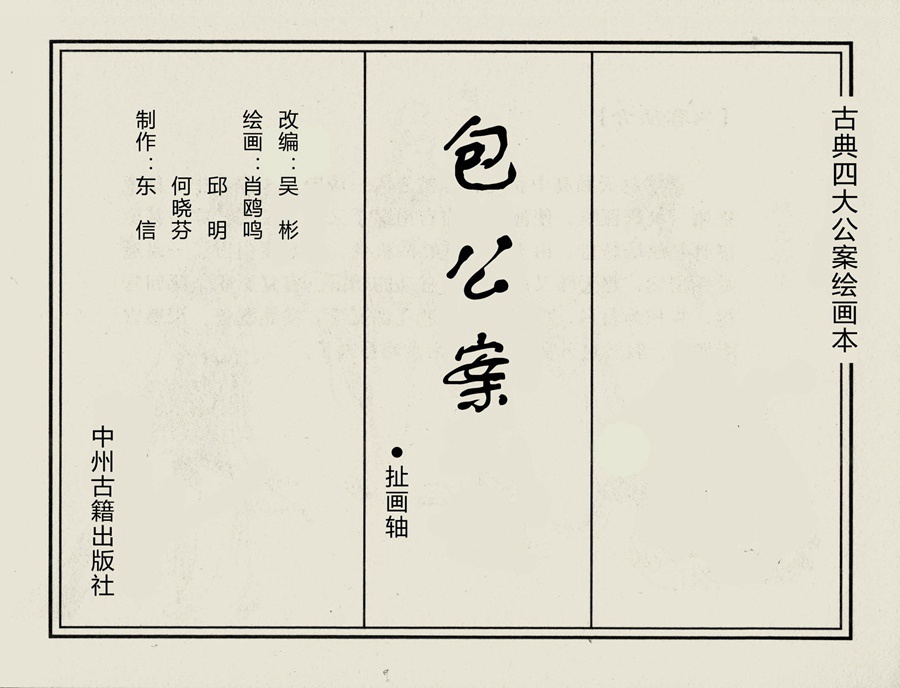 古典四大公案绘画本
包公案
●扯画轴
改编：吴 彬
绘画：肖鸥鸣
邱 明
何晓芬
制作：东 信
中州古籍出版社